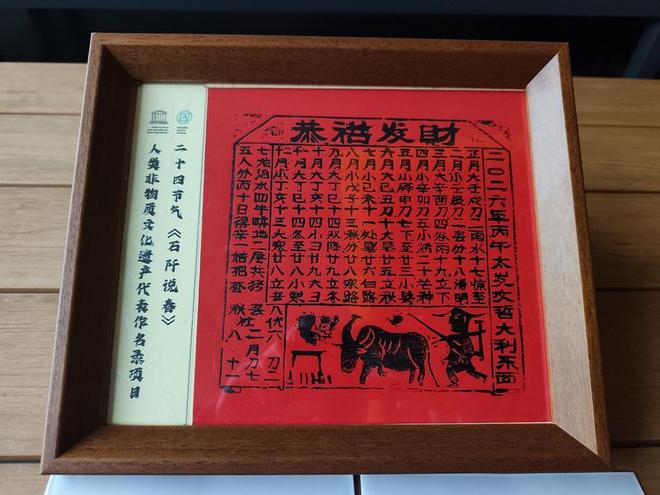 恭禧发財
二〇二六年丙午太岁文哲大利东西
正月大壬戌刀二雨水十七惊至
二月小壬辰刀二春分十八清明
三月大辛酉刀四谷雨十九立下
四月小辛卯刀五小满二十芒种
五月小庚申刀七下至廿三小暑
六月大己丑刀十大暑廿五立秋
七月小己未十一处暑廿六白路
八月小戊子十三秋分廿八寒路
九月大丁巳十四双降廿九立冬
十月大丁亥十四小雪廿九大雪
十一月大丁巳十四冬至廿八小寒
十二月小丁亥十三大寒廿八立春
七龙治水四牛耕地二屠共猪
五人分丙十日得辛一姑把蚕
春社二月刀七
秋社八
二十四节气《石阡说春》
人类非物质文化遗产代表作名录项目